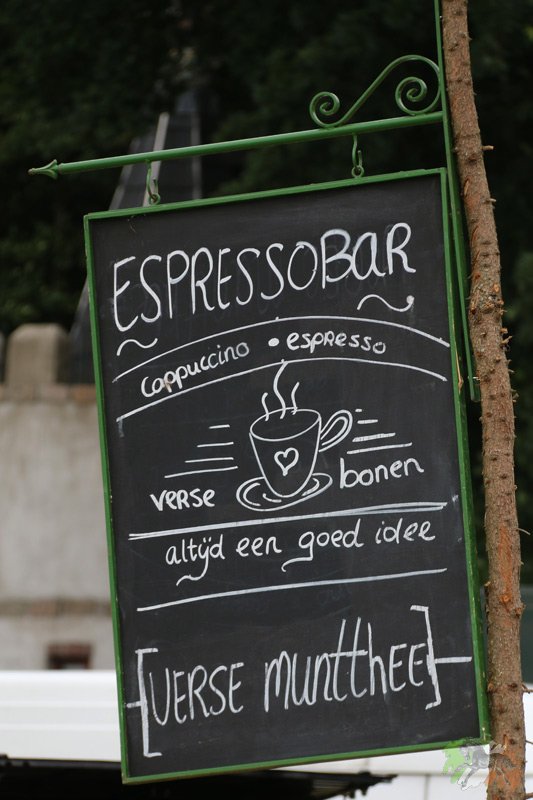 ESPRESSOBAR
cappuccino • espresso
verse bonen
altijd een goed idee
[VERSE muntthee]